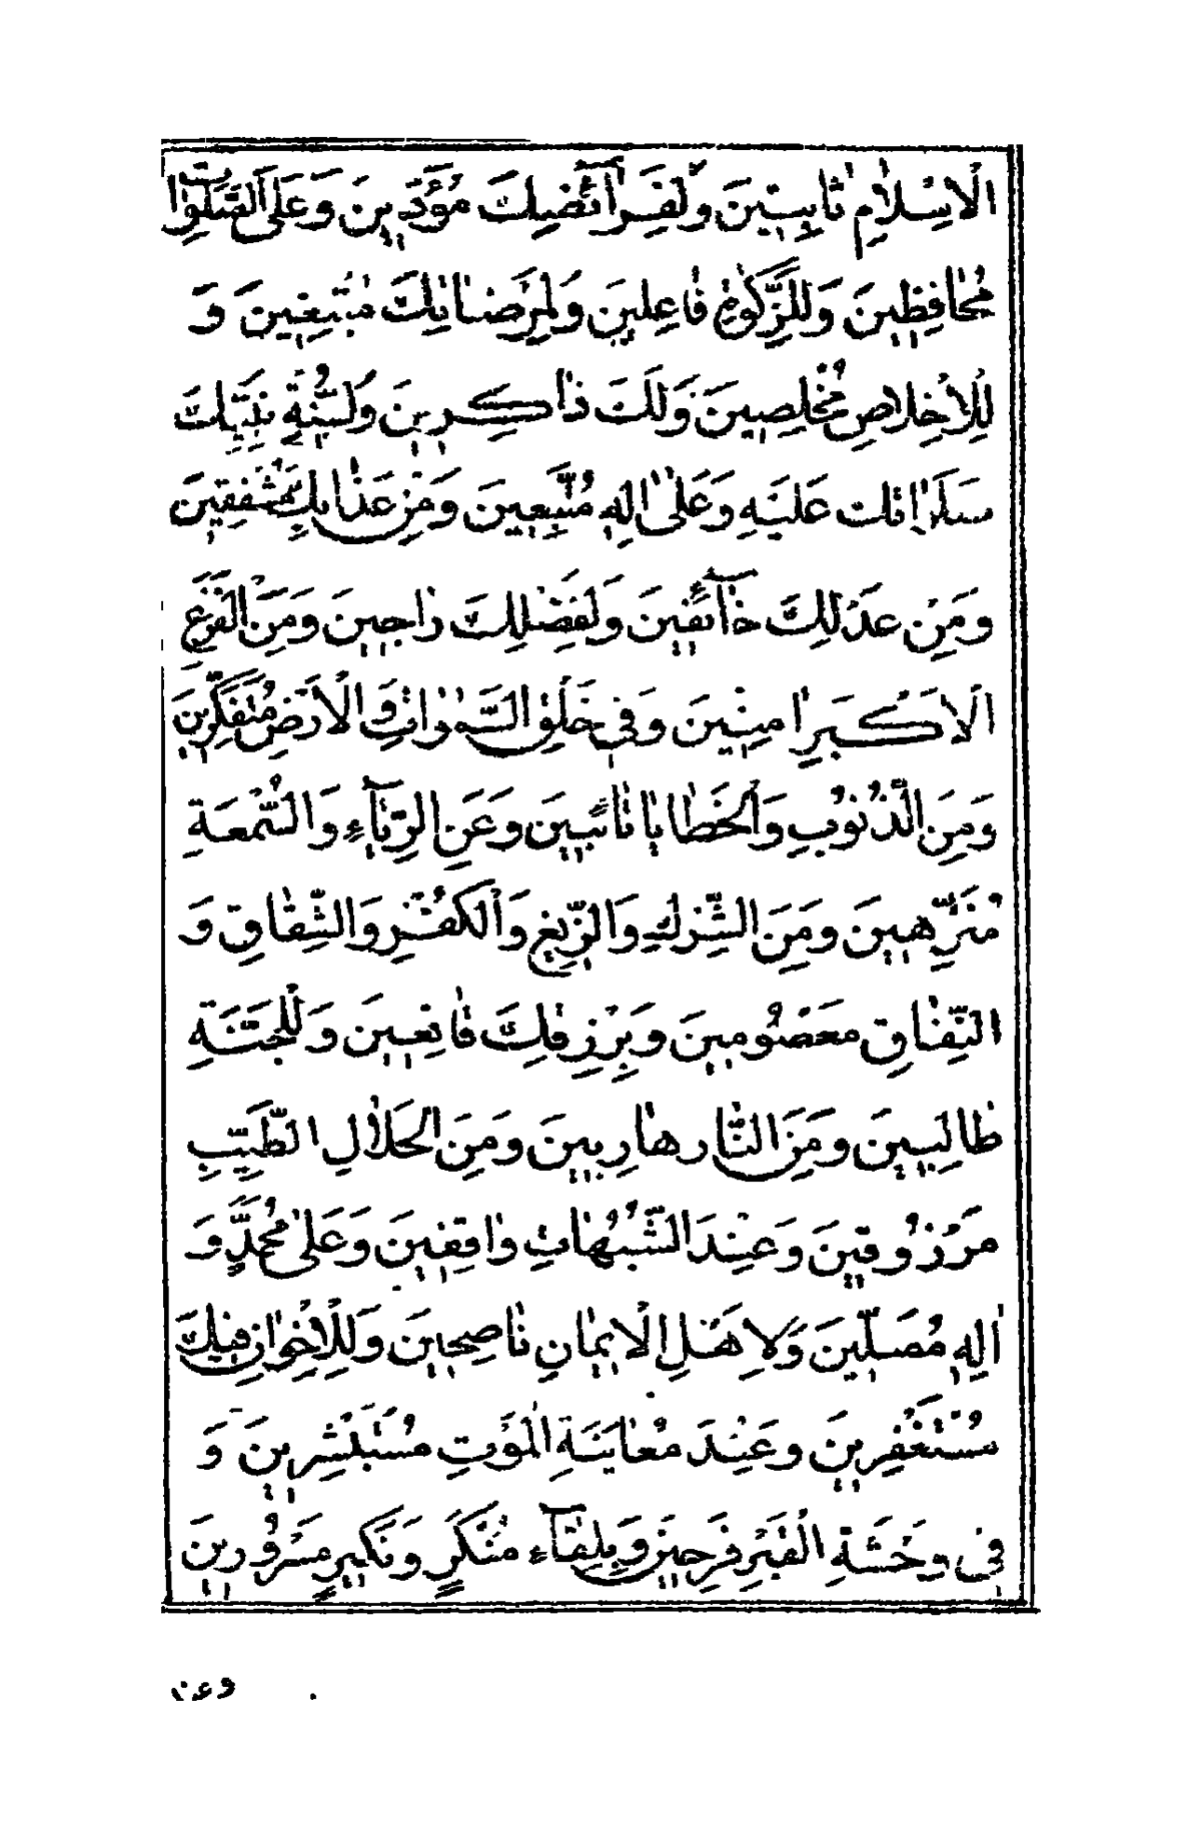 الْاِسْلَامِ ثَابِتِيْنَ وَلِفَرَآئِضِكَ مُؤَدِّيْنَ وَعَلَى الصَّلَوٰاتِ
مُحَافِظِيْنَ وَلِلزَّكٰوةِ فَاعِلِيْنَ وَلِمَرْضَاتِكَ مُبْتَغِيْنَ وَ
لِلْاِخْلَاصِ مُخْلِصِيْنَ وَلَكَ ذَاكِرِيْنَ وَلِسُنَّةِ نَبِيِّكَ
سَلَوٰاتُكَ عَلَيْهِ وَعَلىٰ اٰلِهٖ مُتَّبِعِيْنَ وَمِنْ عَذَابِكَ مُشْفِقِيْنَ
وَمِنْ عَدْلِكَ خَآئِفِيْنَ وَلِفَضْلِكَ رَاجِيْنَ وَمِنَ الْفَزَعِ
الْاَكْبَرِ اٰمِنِيْنَ وَفِيْ خَلْقِ السَّمٰوَاتِ وَالْاَرْضِ مُتَفَكِّرِيْنَ
وَمِنَ الذُّنُوْبِ وَالْخَطَايَا تَائِبِيْنَ وَعَنِ الرِّيَآءِ وَالسُّمْعَةِ
مُنَزَّهِيْنَ وَمِنَ الشِّرْكِ وَالزَّيْغِ وَالْكُفْرِ وَالشِّقَاقِ وَ
النِّفَاقِ مَعْصُوْمِيْنَ وَبِرِزْقِكَ قَانِعِيْنَ وَلِلْجَنَّةِ
طَالِبِيْنَ وَمِنَ النَّارِ هَارِبِيْنَ وَمِنَ الْحَلَالِ الطَّيِّبِ
مَرْزُوْقِيْنَ وَعِنْدَ الشُّبُهَاتِ وَاقِفِيْنَ وَعَلىٰ مُحَمَّدٍ وَ
اٰلِهٖ مُصَلِّيْنَ وَلِاَهْلِ الْاِيْمَانِ نَاصِحِيْنَ وَلِلْاِخْوَانِ فِيْكَ
مُسْتَغْفِرِيْنَ وَعِنْدَ مُعَايَنَةِ الْمَوْتِ مُسْتَبْشِرِيْنَ وَ
فِيْ وَحْشَةِ الْقَبْرِ فَرِحِيْنَ وَبِلِقَآءِ مُنْكَرٍ وَنَكِيْرٍ مَسْرُوْرِيْنَ
وعن